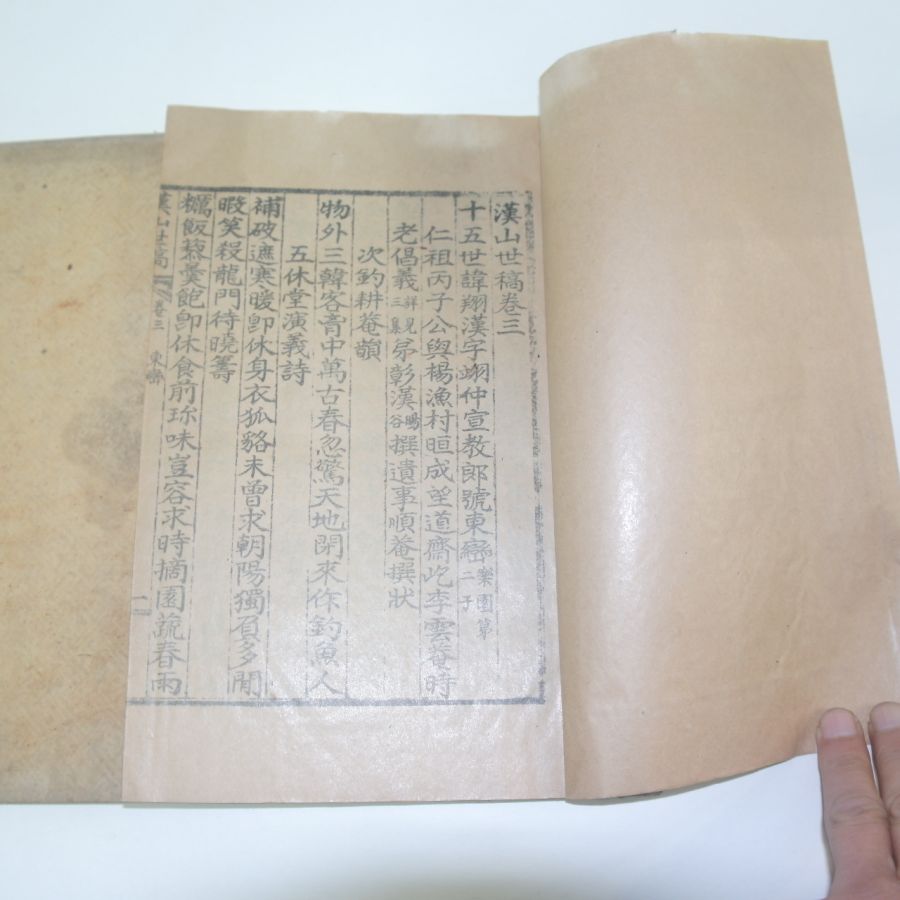 漢山世稿卷三
十五世諱翔漢字翊仲宣教郎號東巒樂園第二子
仁祖丙子公與楊漁村晅成望道齋屹李雲菴時
老倡義詳見三集弟彰漢暘谷撰遺事順菴撰狀
次釣耕菴韻
物外三韓客膏中萬古春忽驚天地閉來作釣魚人
五休堂演義詩
補破遮寒暖卽休身衣狐貉未曾求朝陽獨負多閒
暇笑殺龍門待曉籌
糲飯藜羹飽卽休食前珎味豈容求時摘園蔬春雨
漢山世稿 卷三 東巒 一